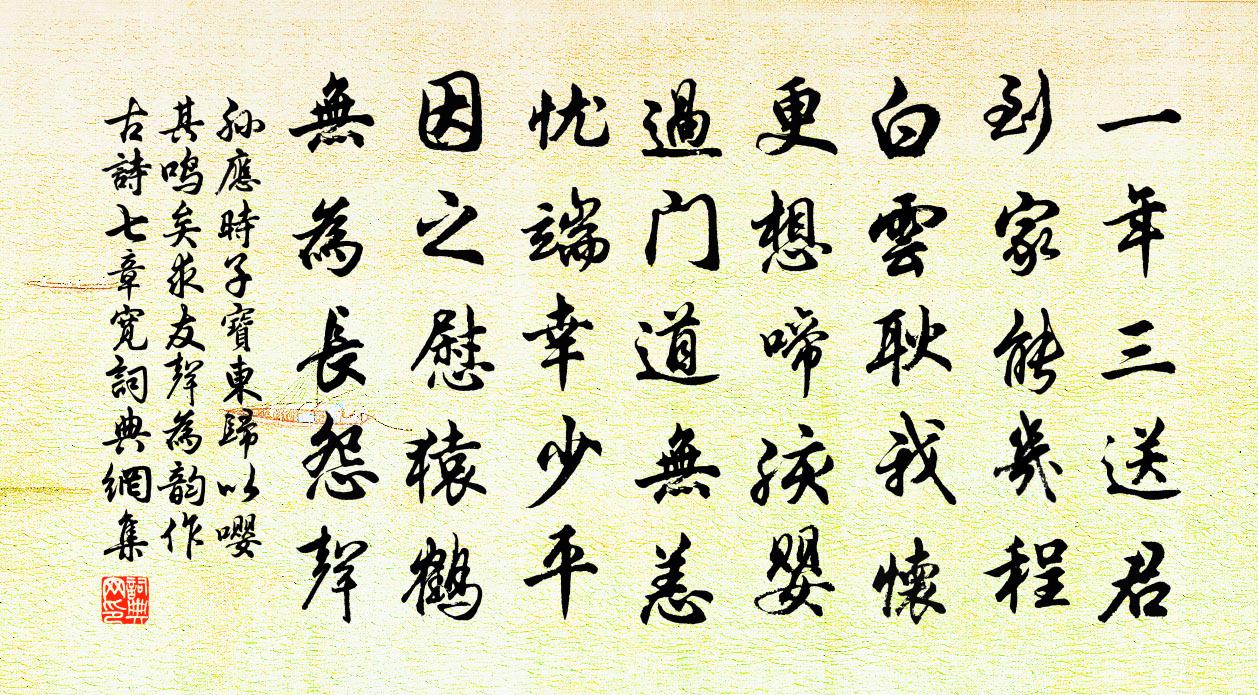 一年三送君
到家能几程
白雲耿我懷
更想啼孩婴
過门道無恙
忧端幸少平
因之慰猿鶴
無為長怨聲
孙應時子寶東歸以嘤
其鸣矣求友聲為韵作
古詩七章寬詞典網集
詞典网印